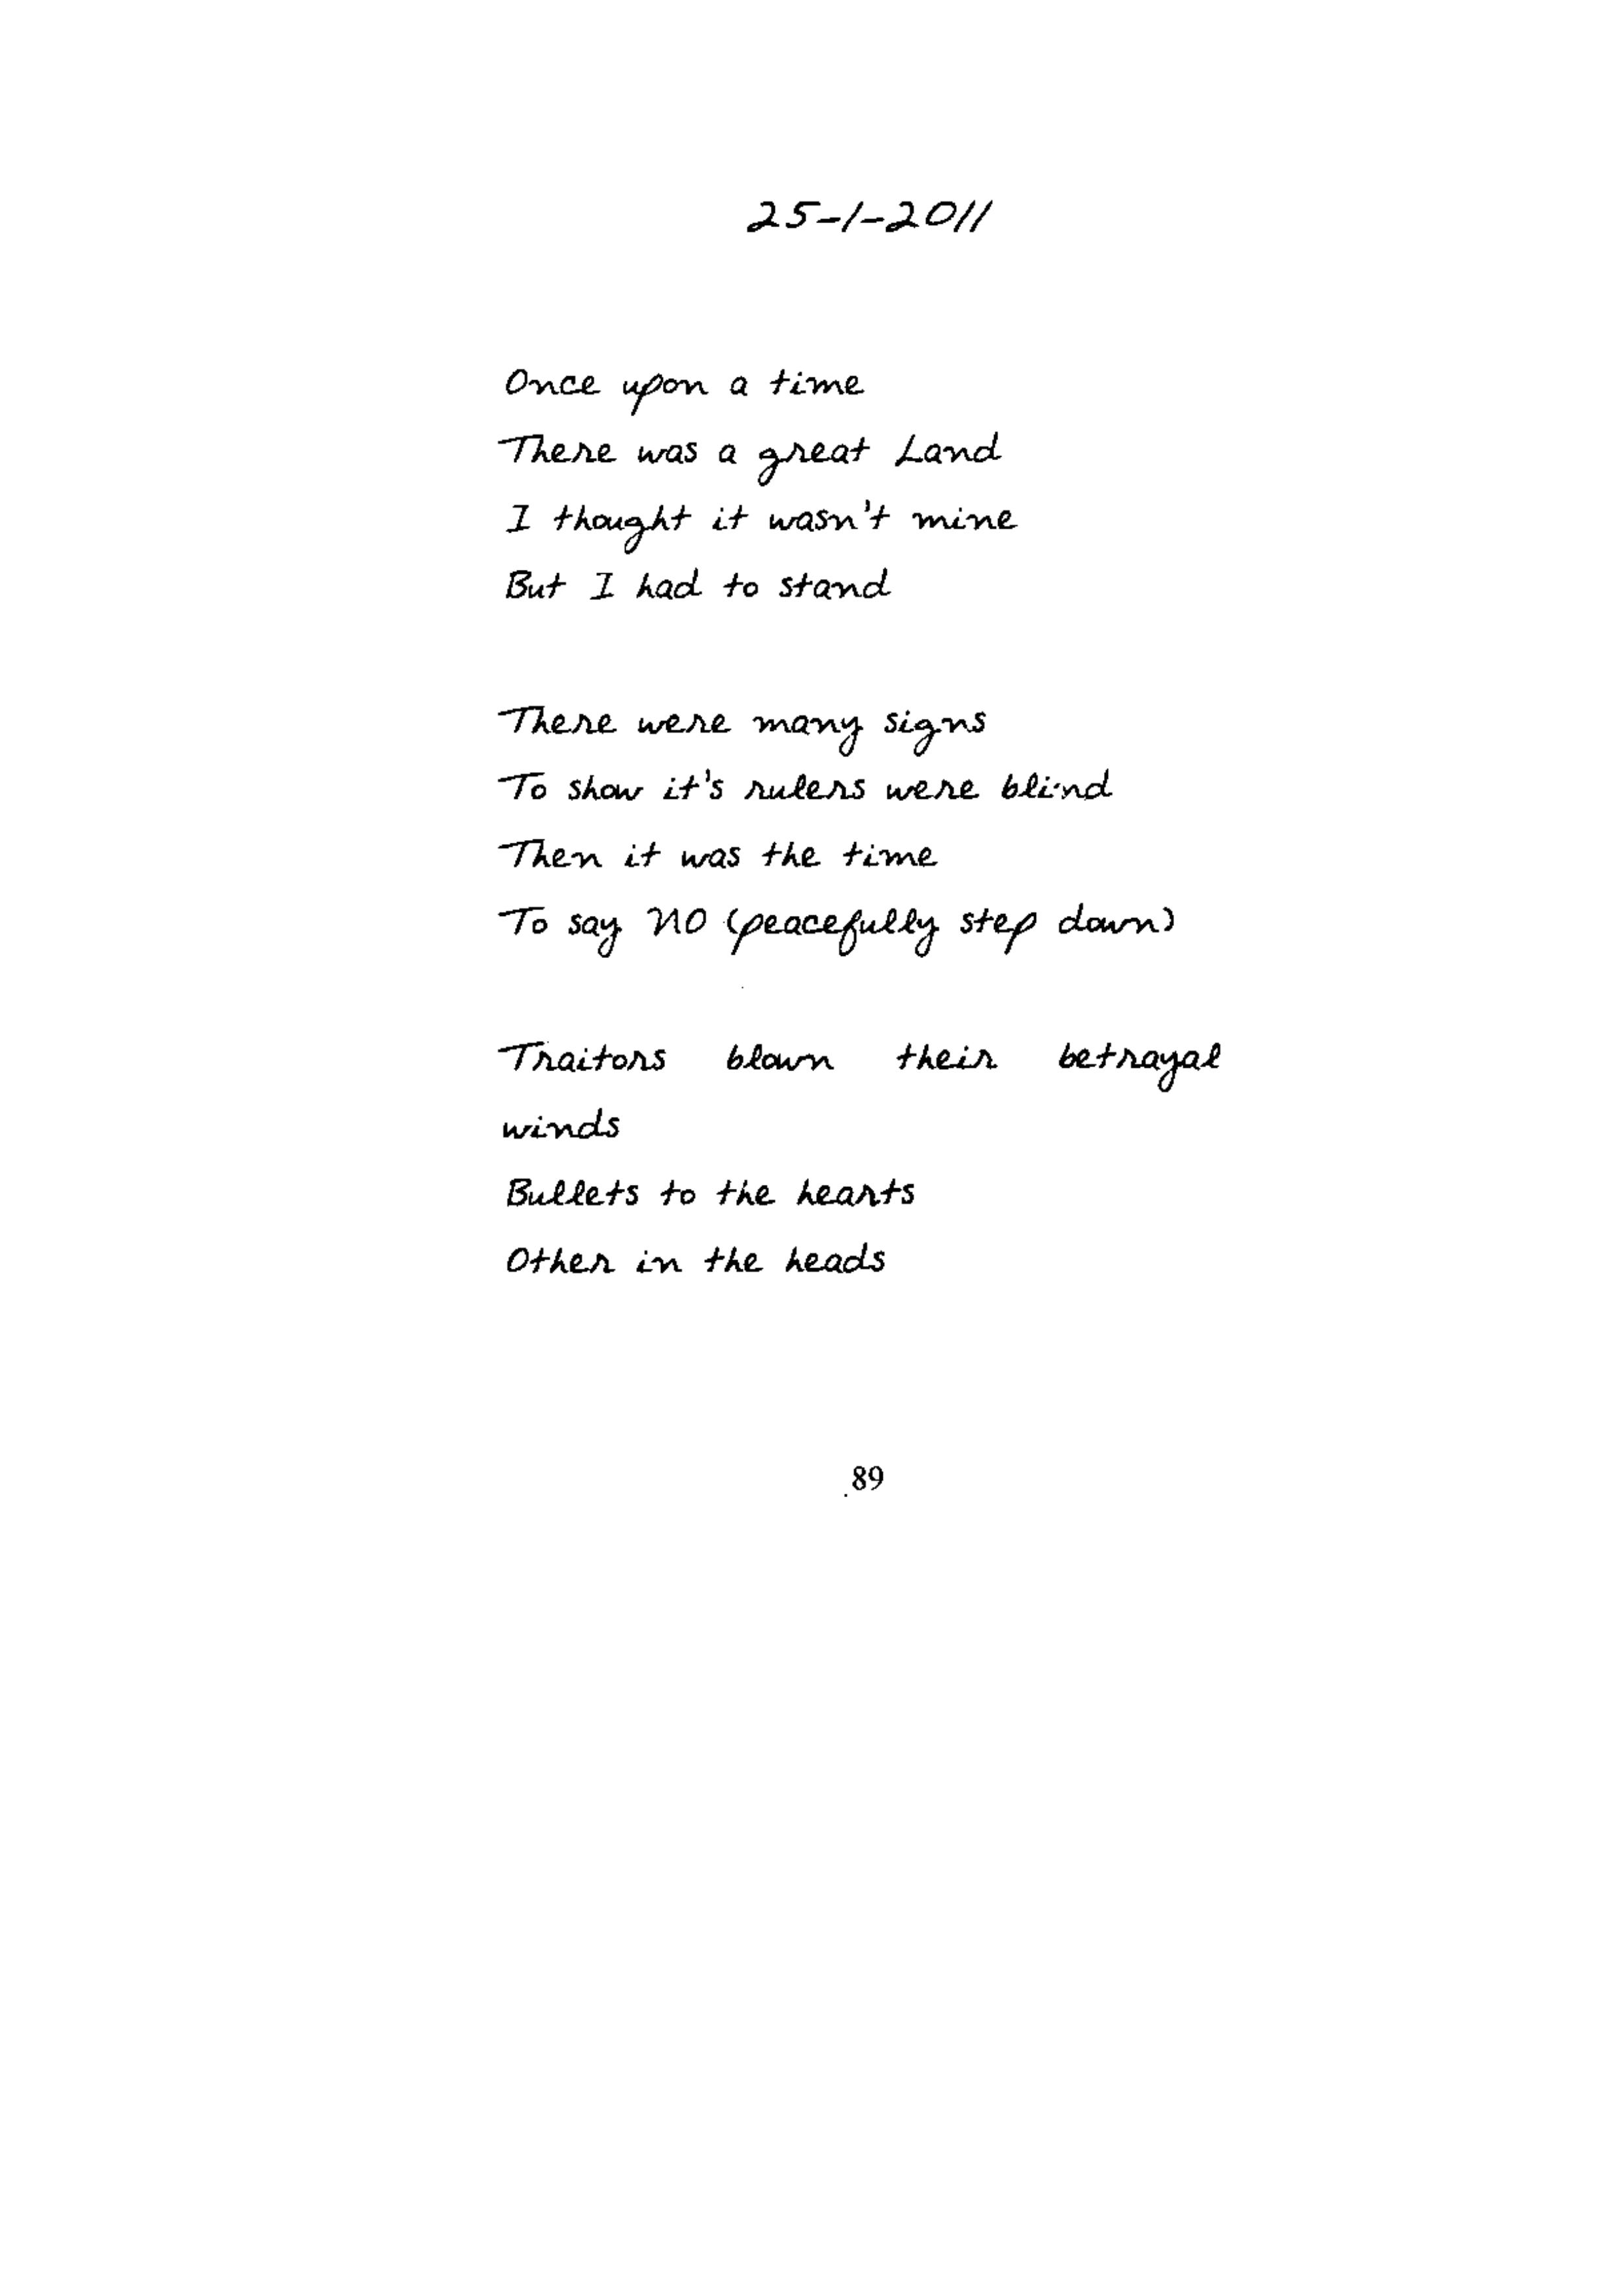 25-1-2011
Once upon a time
There was a great Land
I thought it wasn't mine
But I had to stand
There were many signs
To show it's rulers were blind
Then it was the time
To say NO (peacefully step down)
Traitors blown their betrayal
winds
Bullets to the hearts
Other in the heads
89